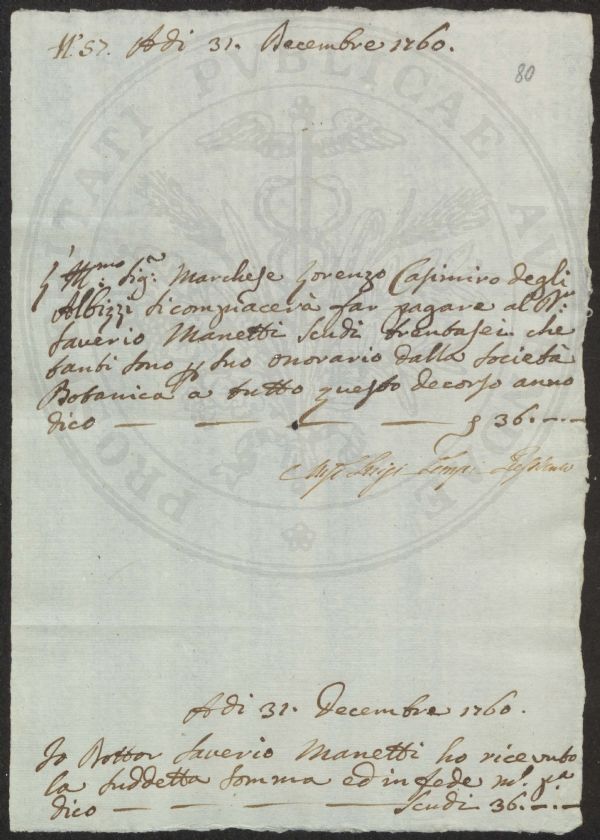 N.° 57. Adi 31. Decembre 1760.
80
L' Ill.mo Sig.r Marchese Lorenzo Casimiro degli
Albizzi si compiacerà far pagare al D.r
Saverio Manetti Scudi trentasei che
tanti sono p suo onorario dalla Società
Botanica a tutto questo decorso anno
dico — — — — 36.—.—
Luigi
Adi 31. Decembre 1760.
Io Dottor Saverio Manetti ho ricevuto
la suddetta somma ed in fede m.o p.a
dico — — — — Scudi 36.—.—
PROSPERITATI PVBLICAE AVGENDAE